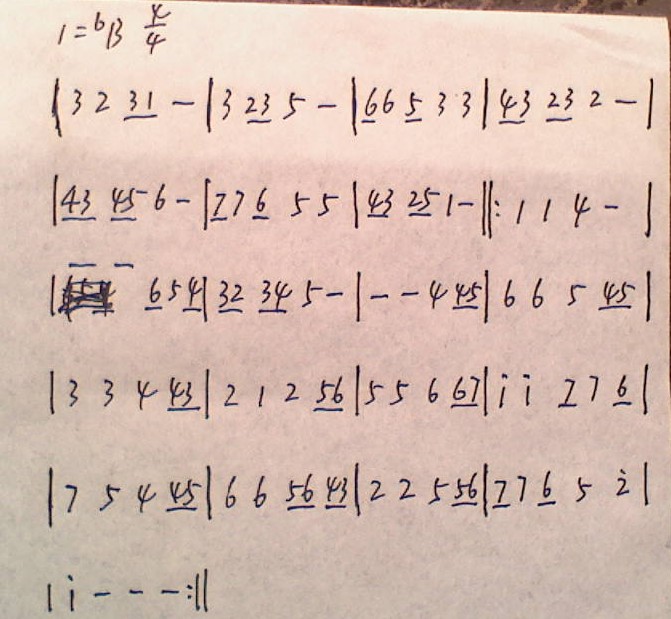 1=ᵇB 4/4
|3 2 31 - |3 23 5 - |66 5 3 3|43 23 2 - |
|43 45 6 - |77 6 5 5 |43 25 1- ‖: 1 1 4 - |
| - - 6 5 4|32 34 5- |- - 4 45|6 6 5 45|
|3 3 4 43|2 1 2 56|5 5 6 67|i i 7 7 6|
|7 5 4 45|6 6 56 43|2 2 5 56|77 6 5 2̇|
|i - - - :‖